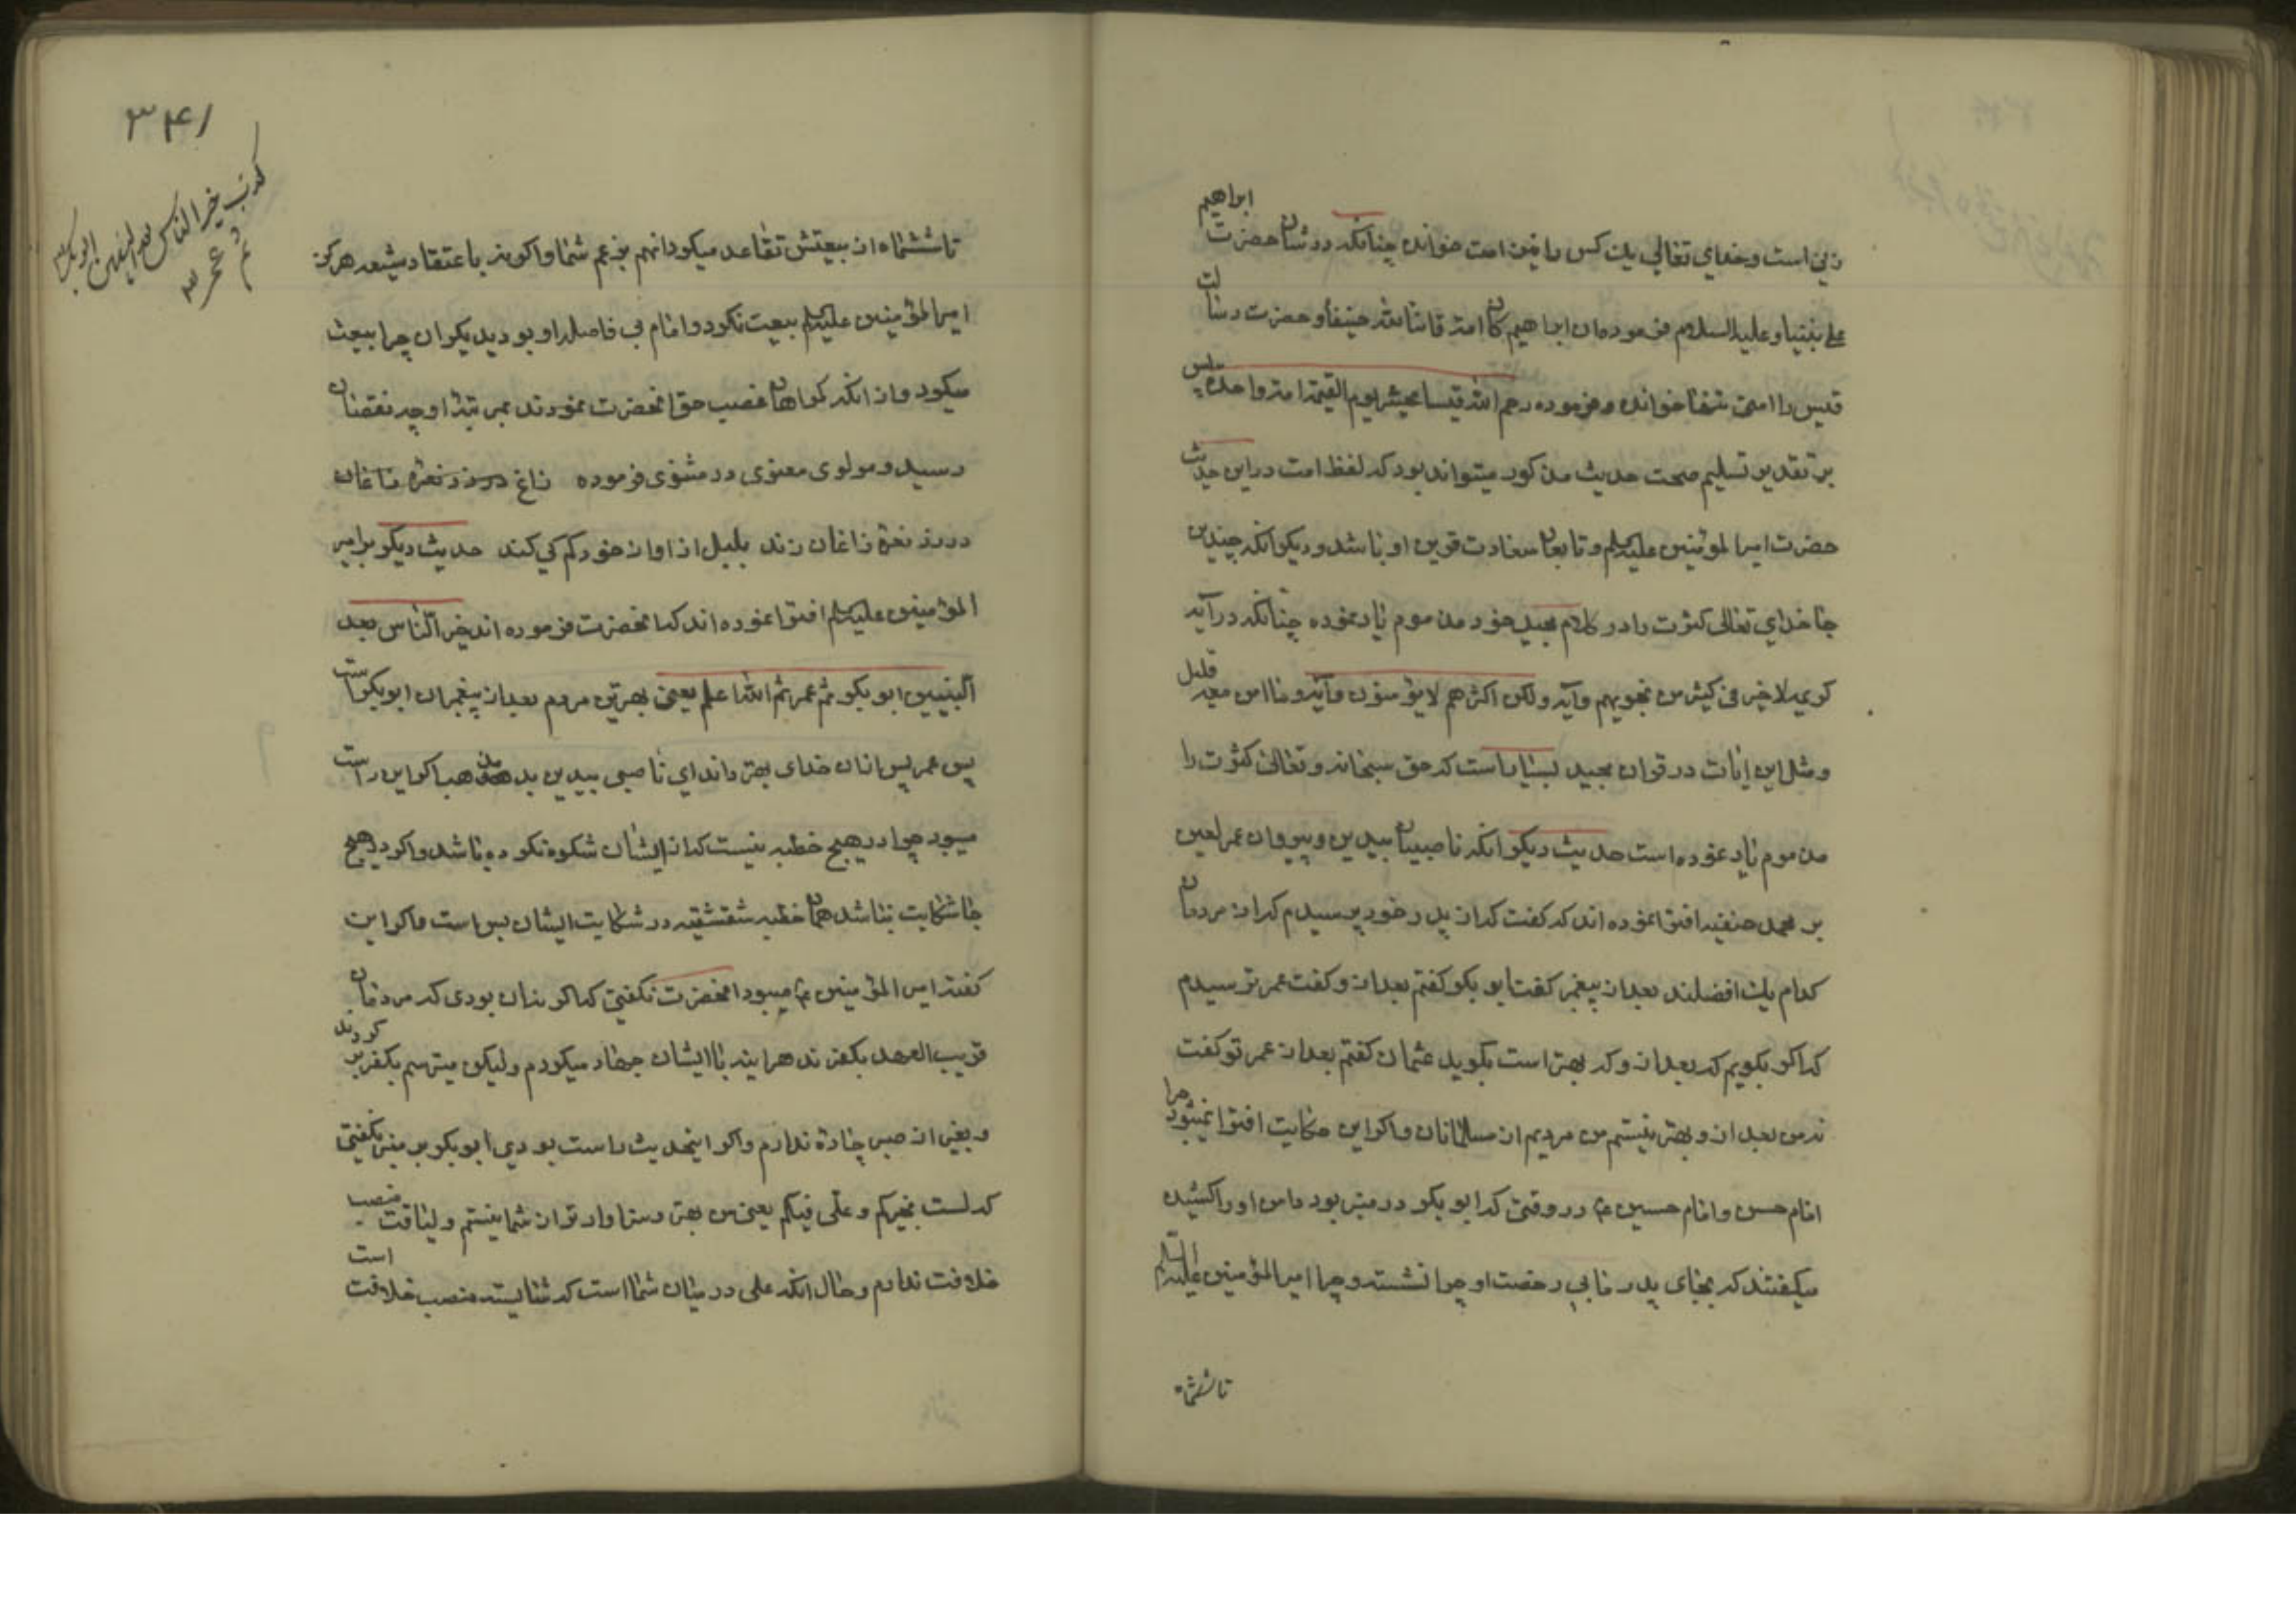 زنی است و خدای تعالی یک کس را نیز امت خوانده چنانکه در شان حضرت ابراهیم
علی نبینا و علیه السلام فرموده ان ابراهیم کان امة قانتا لله حنیفا و حضرت رسالت
قیس را امتی تنها خوانده و فرموده رحم الله قیسا یحشر یوم القیمة امة واحدة پس
بر تقدیر تسلیم صحت حدیث مذکور میتواند بود که لفظ امت در این حدیث
حضرت امیر المومنین علیه السلم و تابعان سعادت قرین او باشد و دیگر انکه چندین
جا خدای تعالی کثرت را در کلام مجید خود مذموم یاد نموده چنانکه در آیه
کریمه لا خیر فی کثیر من نجویهم و آیه ولکن اکثرهم لا یؤمنون و آیه و ما امن معه قلیل
و مثل این ایات در قران مجید بسیار است که حق سبحانه و تعالی کثرت را
مذموم یاد نموده است حدیث دیگر انکه ناصبیان بیدین و پیروان عمر لعین
بر محمد حنفیه افترا نموده اند که گفت که از پدر خود پرسیدم که از مردمان
کدام یک افضلند بعد از پیغمبر گفت ابو بکر گفتم بعد از و گفت عمر ترسیدم
که اگر بگویم که بعد از و که بهتر است بگوید عثمان گفتم بعد از عمر تو گفت
نه من بعد از و بهتر نیستم من مردیم از مسلمانان و اگر این حکایت افترا نمیبود چرا
امام حسن و امام حسین ع در وقتی که ابو بکر در منبر بود دامن او را کشیده
میگفتند که بجای پدر ما بی رخصت او چرا نشسته و چرا امیر المؤمنین علیه السلم
تا ششماه
۳۴۱
کذب خیر الناس بعد النبیین ابو بکر
ثم عمر
تا ششماه از بیعتش تقاعد میکرد انهم بزعم شما و اگر نه باعتقاد شیعه هرگز
امیر المؤمنین علیه السلم بیعت نکرد و امام بی فاصله او بود دیگران چرا بیعت
میکرد و از انکه گمراهان غصب حق انحضرت نمودند بمرتبه او چه نقصان
رسید و مولوی معنوی در مثنوی فرموده زاغ در رز نعره زاغان
در رز نعره زاغان زند بلبل از اواز خود کم کی کند حدیث دیگر بر امیر
المؤمنین علیه السلم افترا نموده اند که انحضرت فرموده اند خیر الناس بعد
النبیین ابو بکر ثم عمر ثم الله اعلم یعنی بهترین مردم بعد از پیغمبران ابو بکر است
پس عمر پس ازان خدای بهتر داند ای ناصبی بیدین بد مذهب اگر این راست
میبود چرا در هیچ خطبه نیست که از ایشان شکوه نکرده باشد و اگر در هیچ
جا شکایت نباشد همان خطبه شقشقیه در شکایت ایشان بس است و اگر این
گفته امیر المؤمنین ع میبود انحضرت نگفتی که اگر نه ان بودی که مردمان
قریب العهد بکفرند هراینه با ایشان جهاد میکردم ولیکن میترسم بکفر بر گردند
و بغیر از صبر چاره ندارم و اگر اینحدیث راست بودی ابو بکر بر منبر نگفتی
که لست بخیرکم و علی فیکم یعنی من بهتر و سزاوار تر از شما نیستم و لیاقت منصب
خلافت ندارم و حال انکه علی در میان شما است که شایسته منصب خلافت است